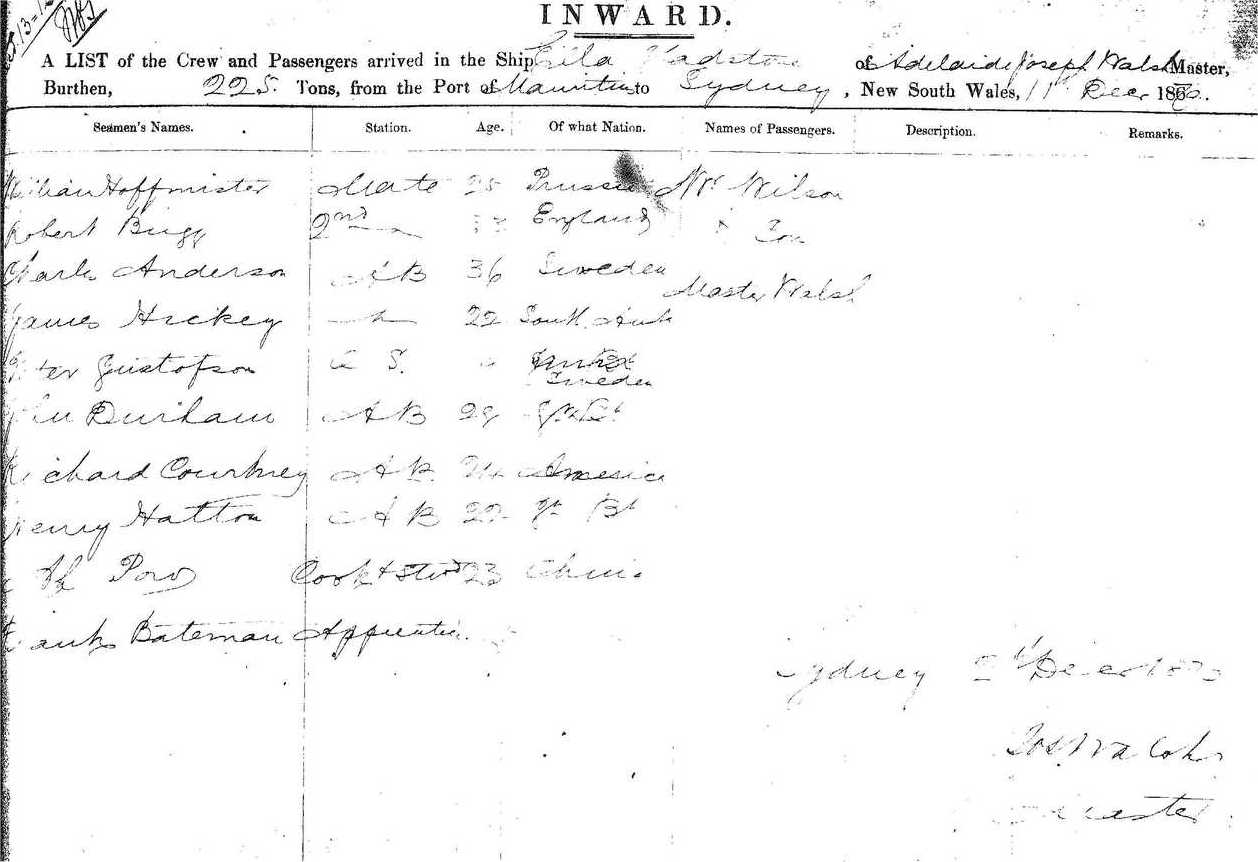 INWARD.
A LIST of the Crew and Passengers arrived in the Ship of Adelaide Joseph Walsh Master,
Burthen, 225 Tons, from the Port of Mauritius to Sydney, New South Wales, 11 Decr 187
Seamen's Names. Station. Age. Of what Nation. Names of Passengers. Description. Remarks.
William Hoffmister Mate 25 Prussia Mr Wilson
Robert Bugg 2nd England " Son
Charles Anderson AB 36 Sweden
Master Walsh
James Hickey 22 South
Peter Gustofson O S. Sweden
John Durham AB 28
Richard Courtney AB. America
Henry Hatton AB 22 Gt Bt
Ah Pow Cook & Stwd 23 China
Frank Bateman Apprentice.
Sydney Decer 187
Jos Walsh
Master